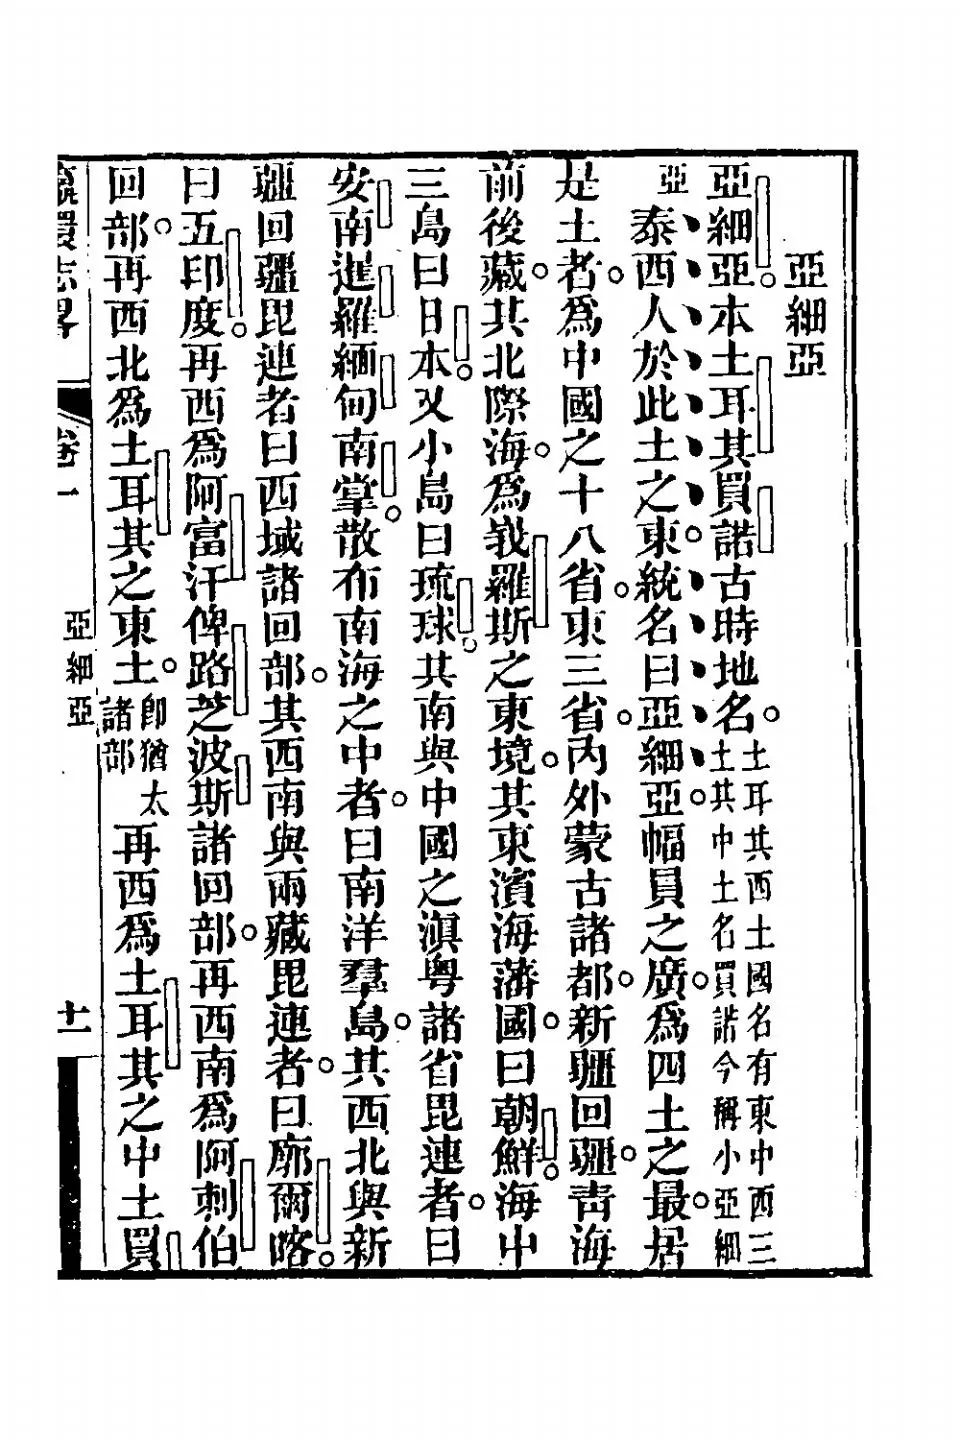 亞細亞
亞細亞本土耳其買諾古時地名土耳其西土國名有東中西三
土其中土名買諾今稱小亞細
亞泰西人於此土之東統名曰亞細亞幅員之廣為四土之最居
是土者為中國之十八省東三省內外蒙古諸部新疆回疆青海
前後藏其北際海為峩羅斯之東境其東濱海藩國曰朝鮮海中
三島曰日本又小島曰琉球其南與中國之滇粤諸省毘連者曰
安南暹羅緬甸南掌散布南海之中者曰南洋羣島其西北與新
疆回疆毘連者曰西域諸回部其西南與兩藏毘連者曰廓爾喀
曰五印度再西為阿富汗俾路芝波斯諸回部再西南為阿剌伯
回部再西北為土耳其之東土即猶太
諸部
再西為土耳其之中土買
瀛環志畧
卷一
亞細亞
十一